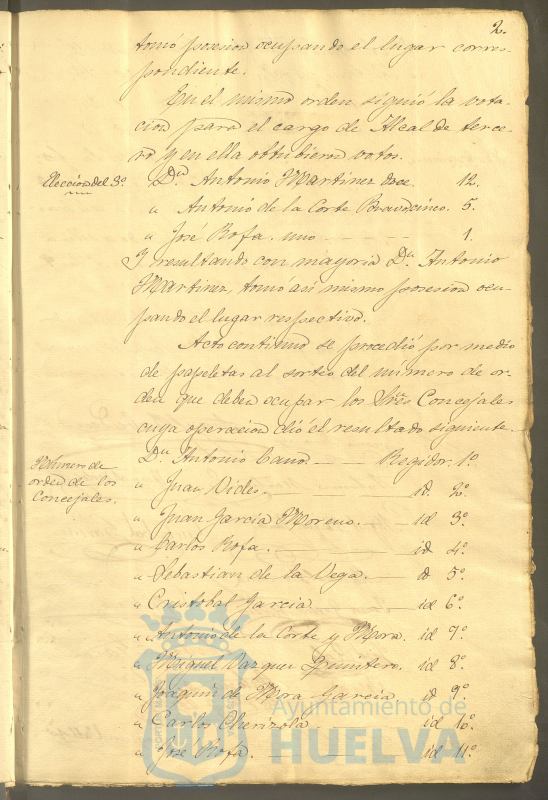 2.
tomó posesion ocupando el lugar corres-
pondiente.
En el mismo orden siguió la vota-
cion para el cargo de Alcalde terce-
ro y en ella obtubieron votos.
Eleccion del 3º.
Dn. Antonio Martinez doce. 12.
" Antonio de la Corte Bravo cinco. 5.
" José Rofa. uno — — — 1.
Y resultando con mayoria Dn. Antonio
Martinez, tomo asi mismo posesion ocu-
pando el lugar respectivo.
Acto continuo se procedió por medio
de papeletas al sorteo del número de or-
den que deben ocupar los Sres. Concejales
cuya operacion dió el resultado siguiente.
Número de
orden de los
Concejales.
Dn. Antonio Cano. — — Regidor. 1º.
" Juan Vides. — id 2º.
" Juan Garcia Moreno. — id 3º.
" Carlos Rofa. — id 4º.
" Sebastian de la Vega. — id 5º.
" Cristobal Garcia — id 6º.
" Antonio de la Corte y Mora. id 7º.
" Miguel Vazquez Quintero. id 8º.
" Joaquin de Mora Garcia id 9º.
" Carlos Cherizola id 10º.
" José Rofa. — id 11º.
Ayuntamiento de
HUELVA